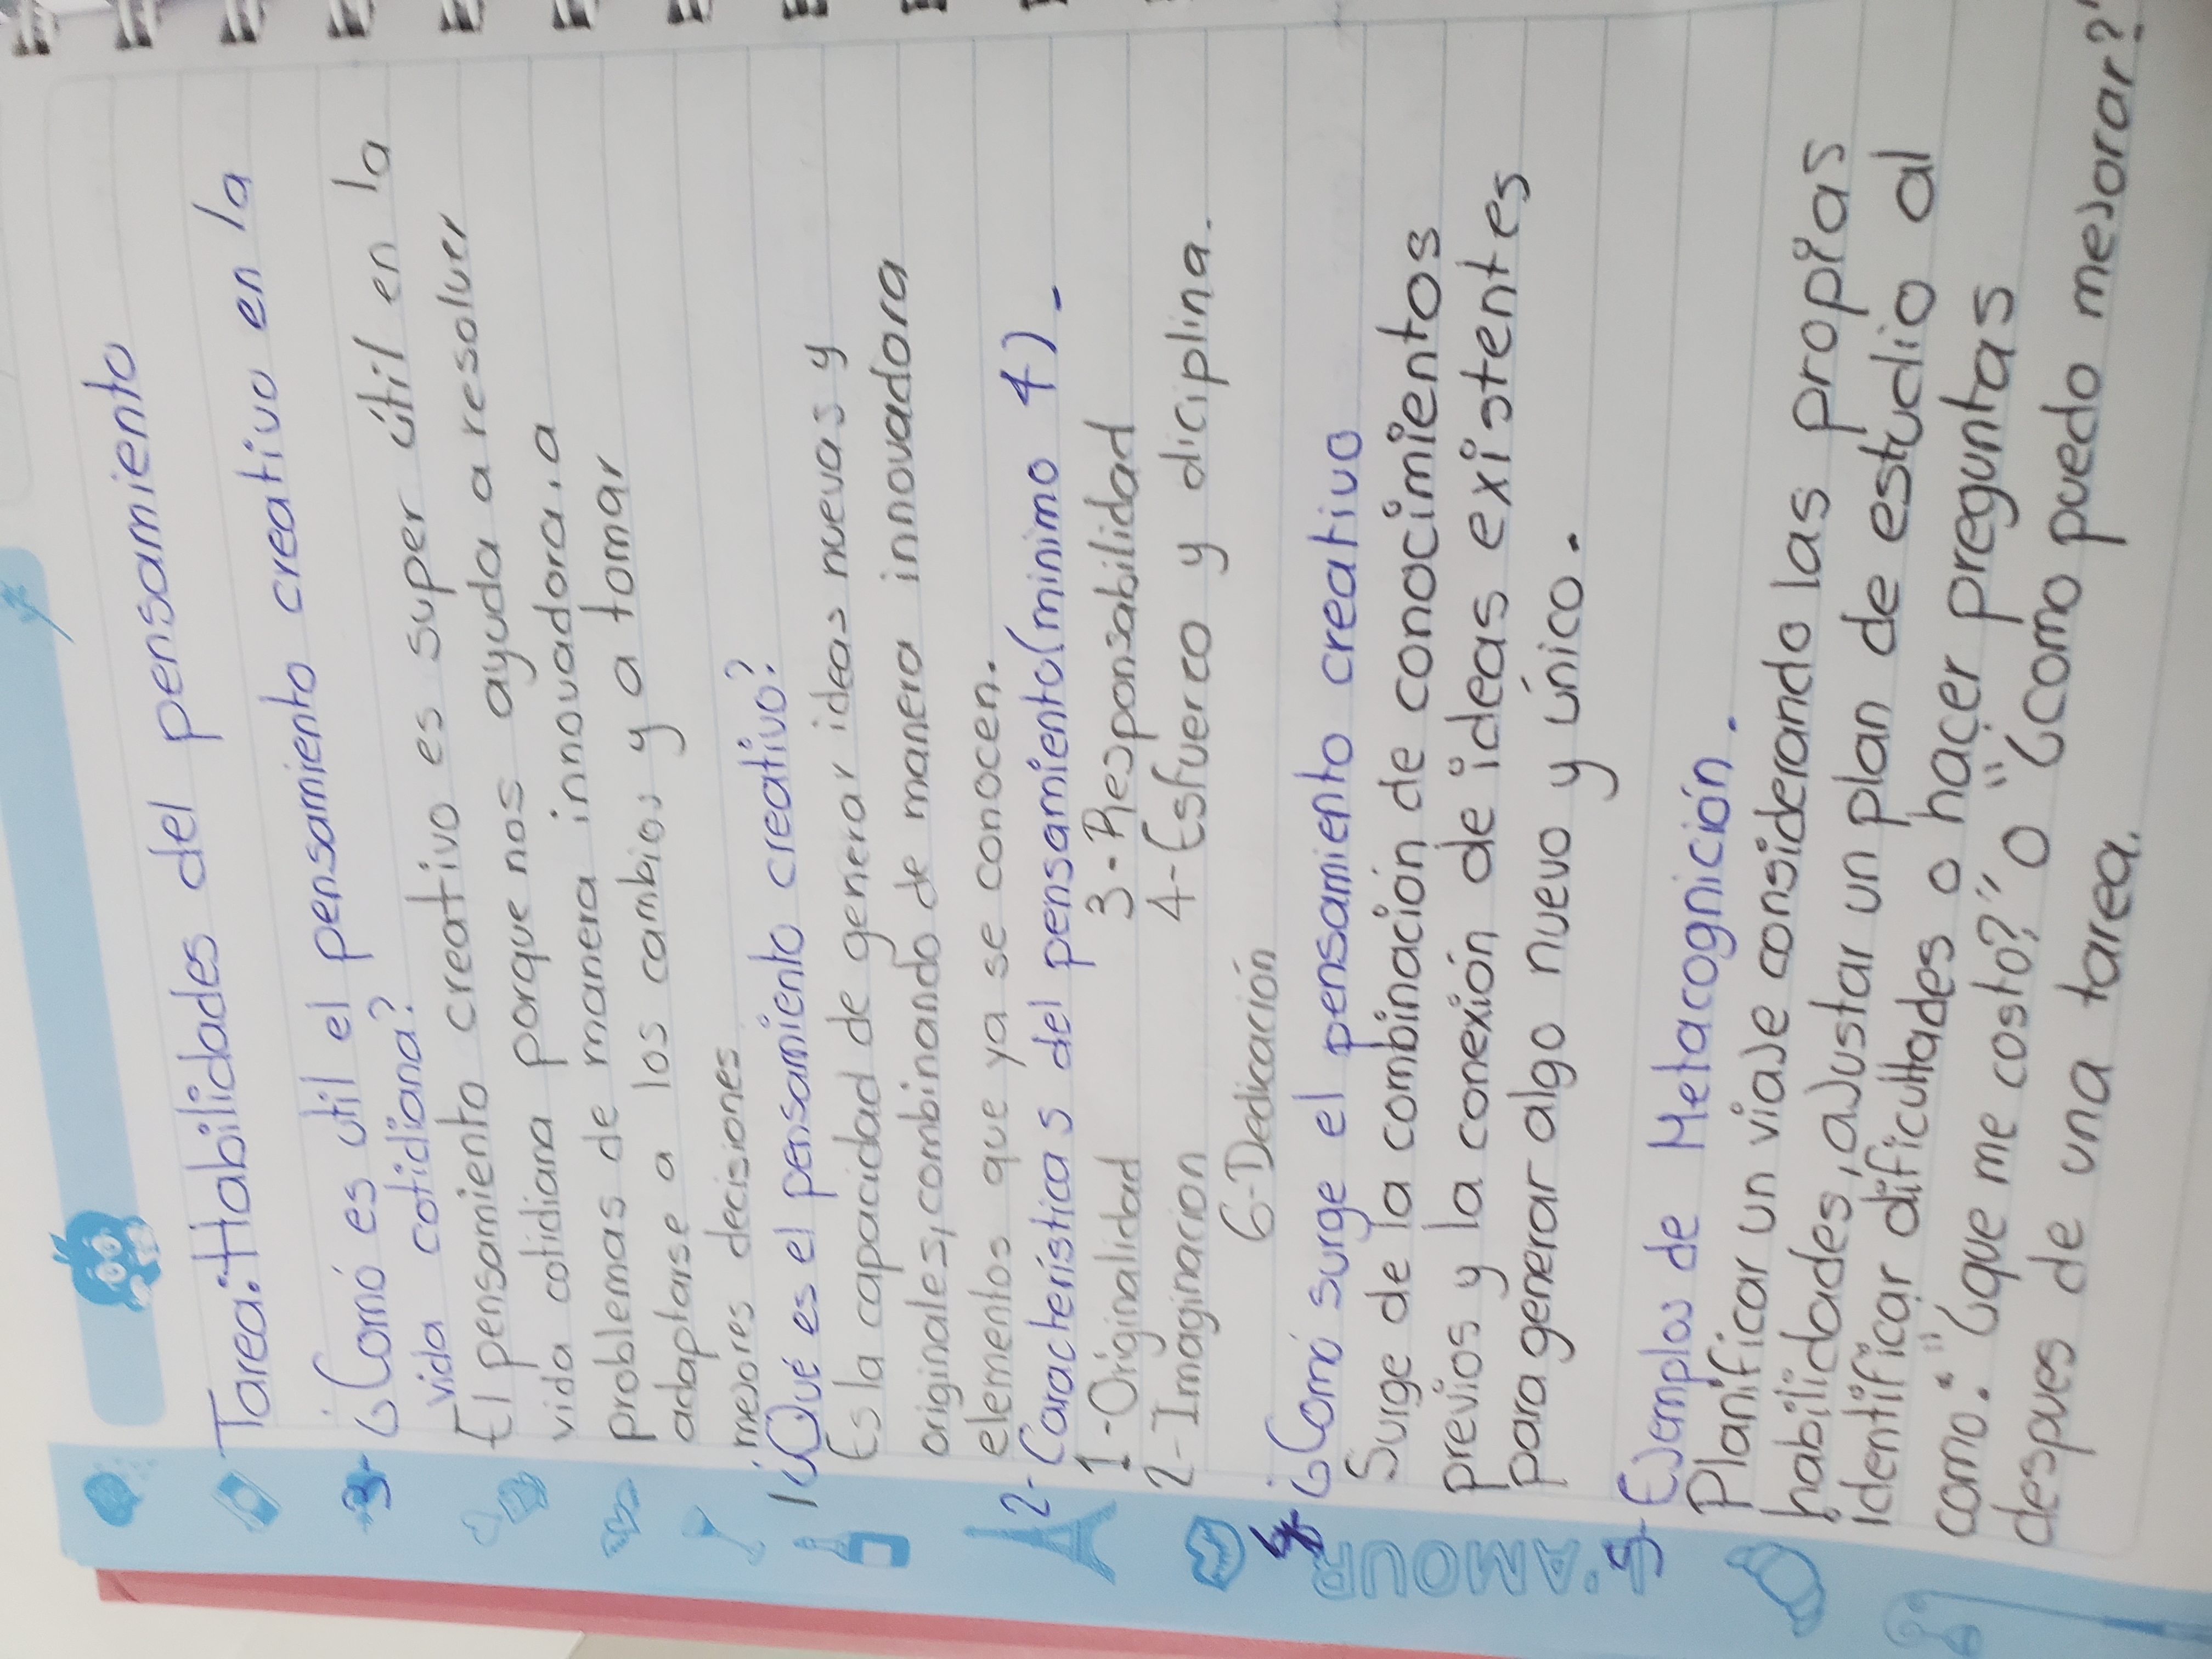 Tarea: Habilidades del pensamiento
3- ¿Comó es útil el pensamiento creativo en la
vida cotidiana?
El pensamiento creativo es super útil en la
vida cotidiana porque nos ayuda a resolver
problemas de manera innovadora, a
adaptarse a los cambios y a tomar
mejores decisiones
1 ¿Qué es el pensamiento creativo?
Es la capacidad de generar ideas nuevas y
originales, combinando de manera innovadora
elementos que ya se conocen.
2- Características del pensamiento (minimo 4).
1- Originalidad 3- Responsabilidad
2- Imaginacion 4- Esfuerco y diciplina.
6- Dedicación
4- ¿Comó surge el pensamiento creativo
Surge de la combinación de conocimientos
previos y la conexión de ideas existentes
para generar algo nuevo y único.
L'AMOUR
5- Ejemplos de Metacognición.
Planificar un viaje considerando las propias
habilidades, ajustar un plan de estudio al
identificar dificultades o hacer preguntas
como: "¿que me costo?" o "¿como puedo mejorar?"
despues de una tarea.